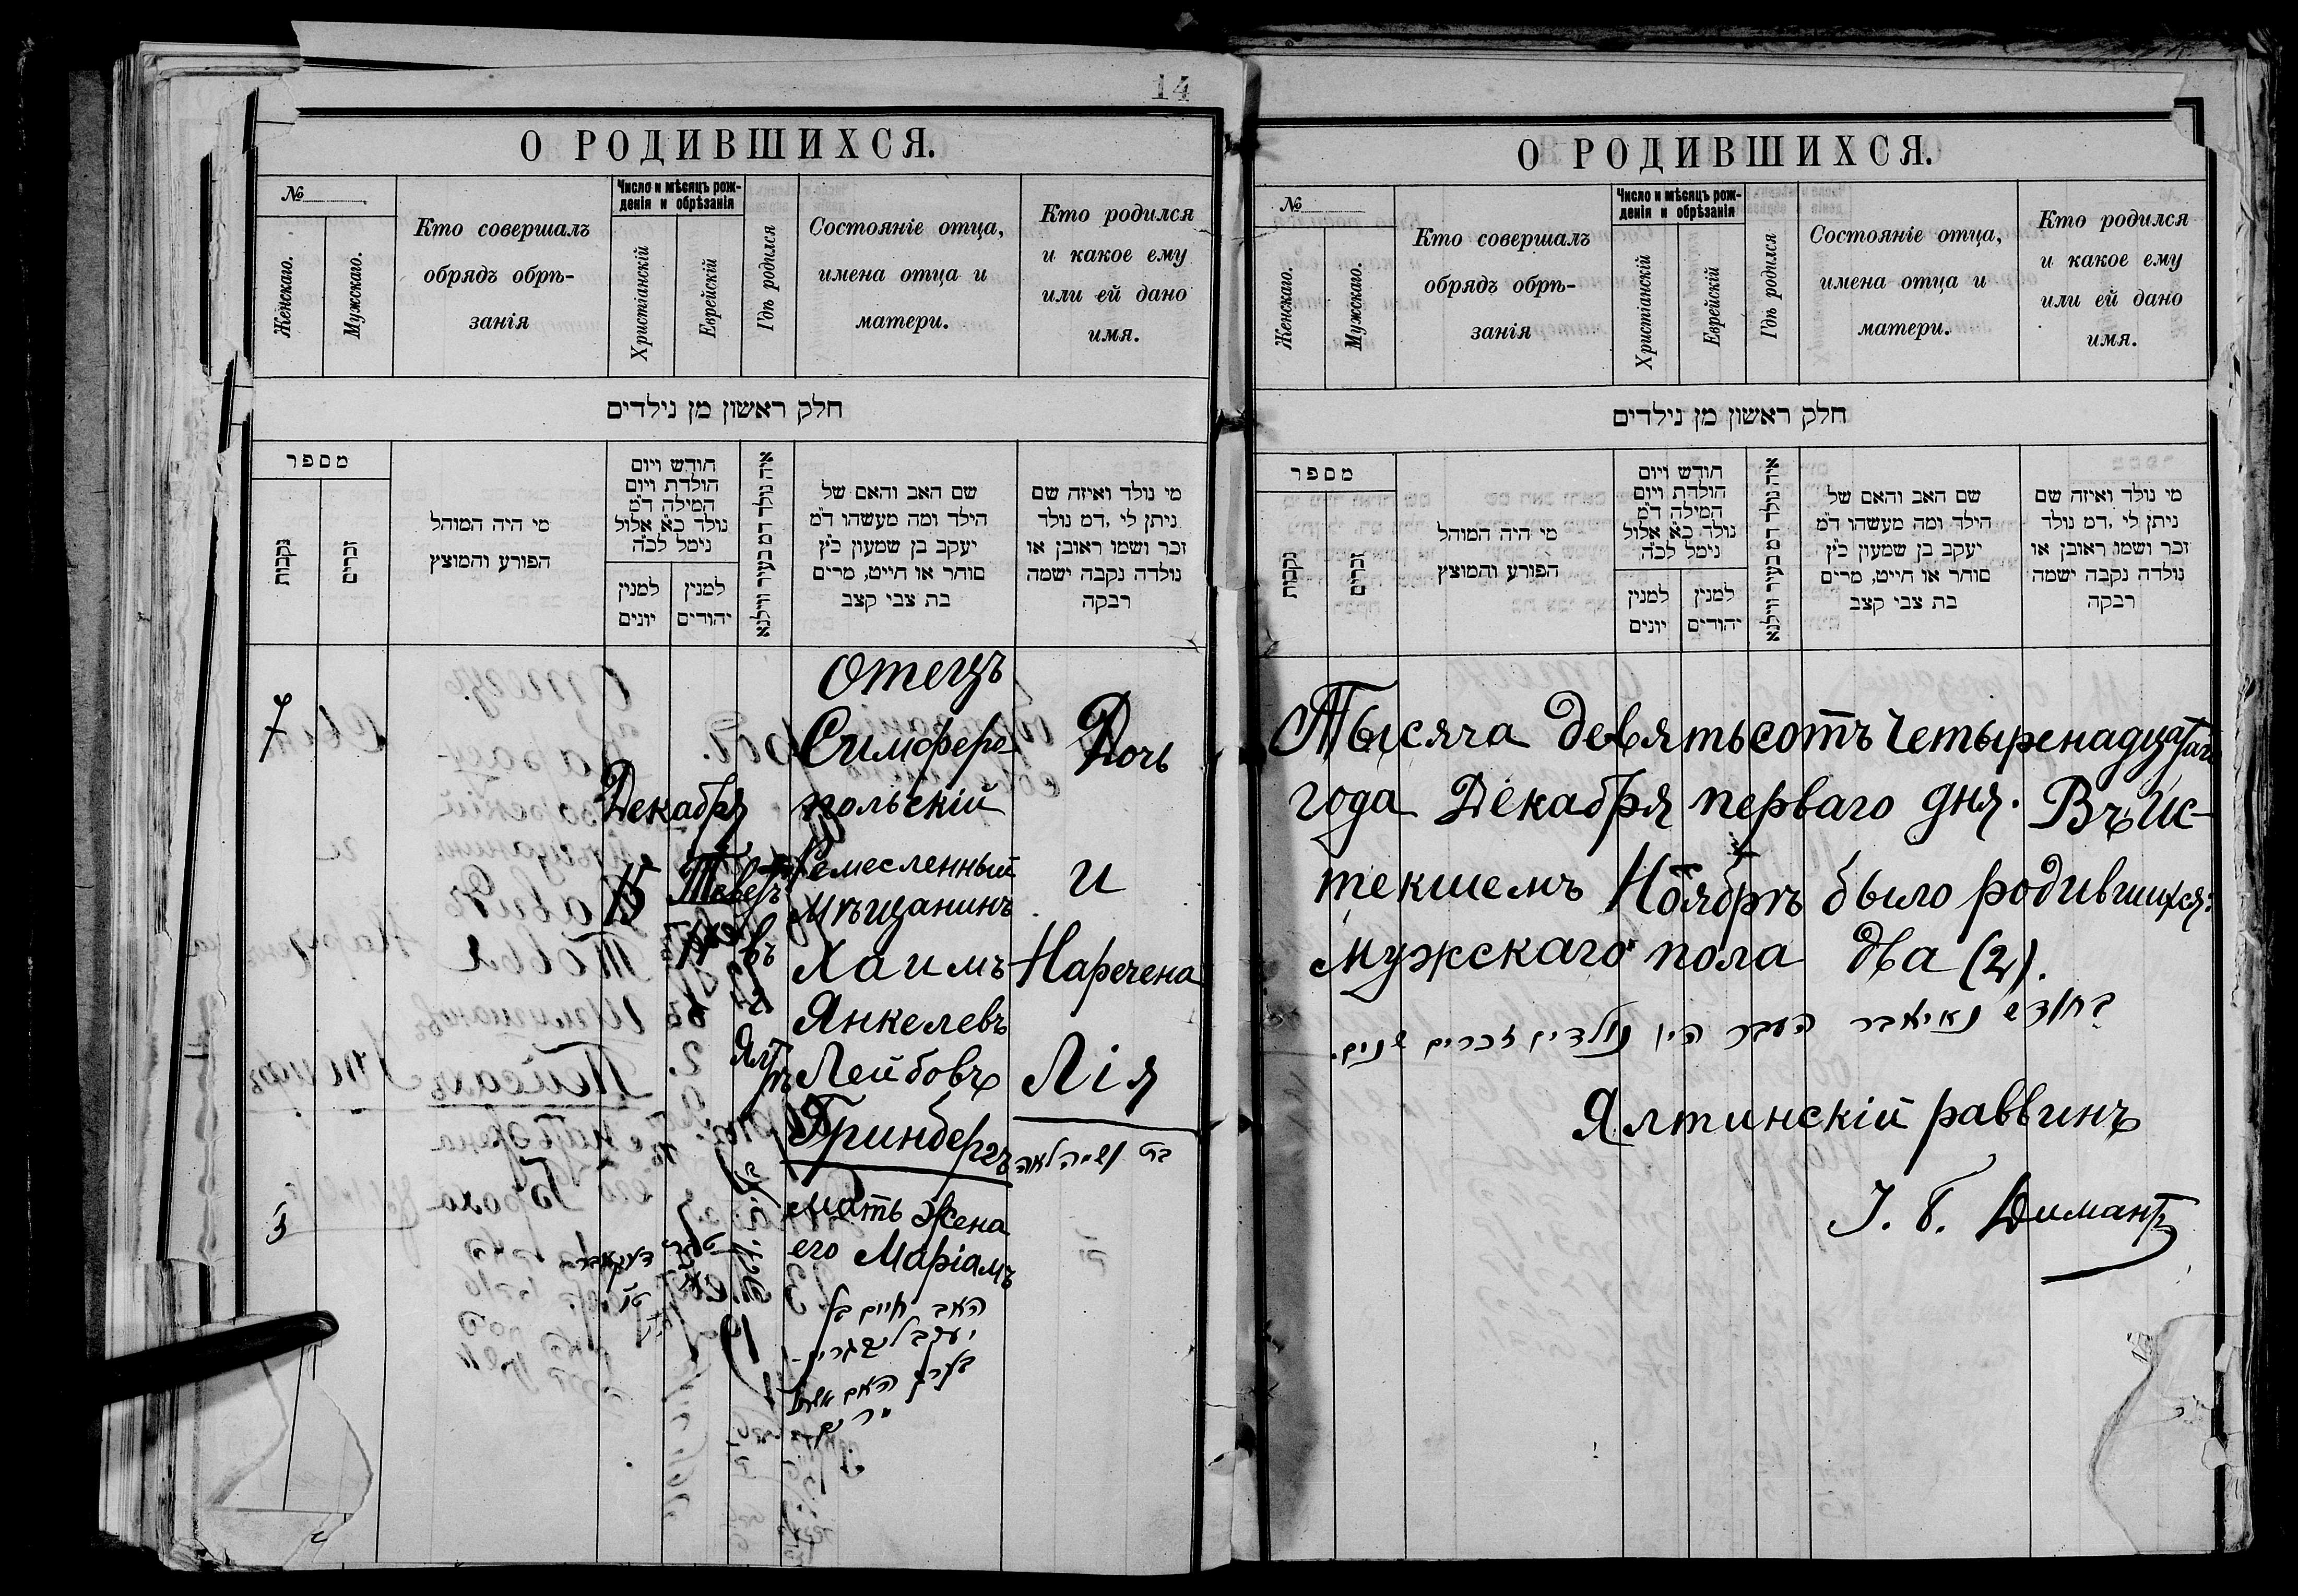 14
О РОДИВШИХСЯ.
№
Женскаго.
Мужскаго.
Кто совершалъ
обрядъ обрѣ-
занія
Число и мѣсяцъ рож-
денія и обрѣзанія
Христіанскій
Еврейскій
Гдѣ родился
Состояніе отца,
имена отца и
матери.
Кто родился
и какое ему
или ей дано
имя.
חלק ראשון מן נילדים
מספר
נקבות
זכרים
מי היה המוהל
הפורע והמוצץ
חודש ויום
הולדת ויום
המילה ד״מ
נולד כ״א אלול
נימל לכ״ה
למנין
יונים
למנין
יהודים
איה נולד דמ בעיר ווילנא
שם האב והאם של
הילד ומה מעשהו ד״מ
יעקב בן שמעון כ״ץ
סוחר או חייט, מרים
בת צבי קצב
מי נולד ואיזה שם
ניתן לי ,דמ נולד
זכר ושמו ראובן או
נולדה נקבה ישמה
רבקה
7
Декабря
15
Тевеѳъ
въ
Ялтѣ
отецъ
Симферо
польскій
Ремесленный
Мѣщанинъ
Хаимъ
Янкелевъ
Лейбовъ
Гринбергъ
мать жена
его Маріамъ
האב חיים בן
יעקב ליב גרינ-
בערג האם אשתו
מרים
Дочь
и
Наречена
Лія
О РОДИВШИХСЯ.
№
Женскаго.
Мужскаго.
Кто совершалъ
обрядъ обрѣ-
занія
Число и мѣсяцъ рож-
денія и обрѣзанія
Христіанскій
Еврейскій
Гдѣ родился
Состояніе отца,
имена отца и
матери.
Кто родился
и какое ему
или ей дано
имя.
חלק ראשון מן נילדים
מספר
נקבות
זכרים
מי היה המוהל
הפורע והמוצץ
חודש ויום
הולדת ויום
המילה ד״מ
נולד כ״א אלול
נימל לכ״ה
למנין
יונים
למנין
יהודים
איה נולד דמ בעיר ווילנא
שם האב והאם של
הילד ומה מעשהו ד״מ
יעקב בן שמעון כ״ץ
סוחר או חייט, מרים
בת צבי קצב
מי נולד ואיזה שם
ניתן לי ,דמ נולד
זכר ושמו ראובן או
נולדה נקבה ישמה
רבקה
Тысяча девятьсотъ четыренадцатаго
года Декабря перваго дня. Въ ис-
текшемъ Ноябрѣ было родившихся:
мужскаго пола два (2).
בחודש נאיאבר העבר היו נולדים זכרים שנים.
Ялтинскій раввинъ
І. Б. Димантъ